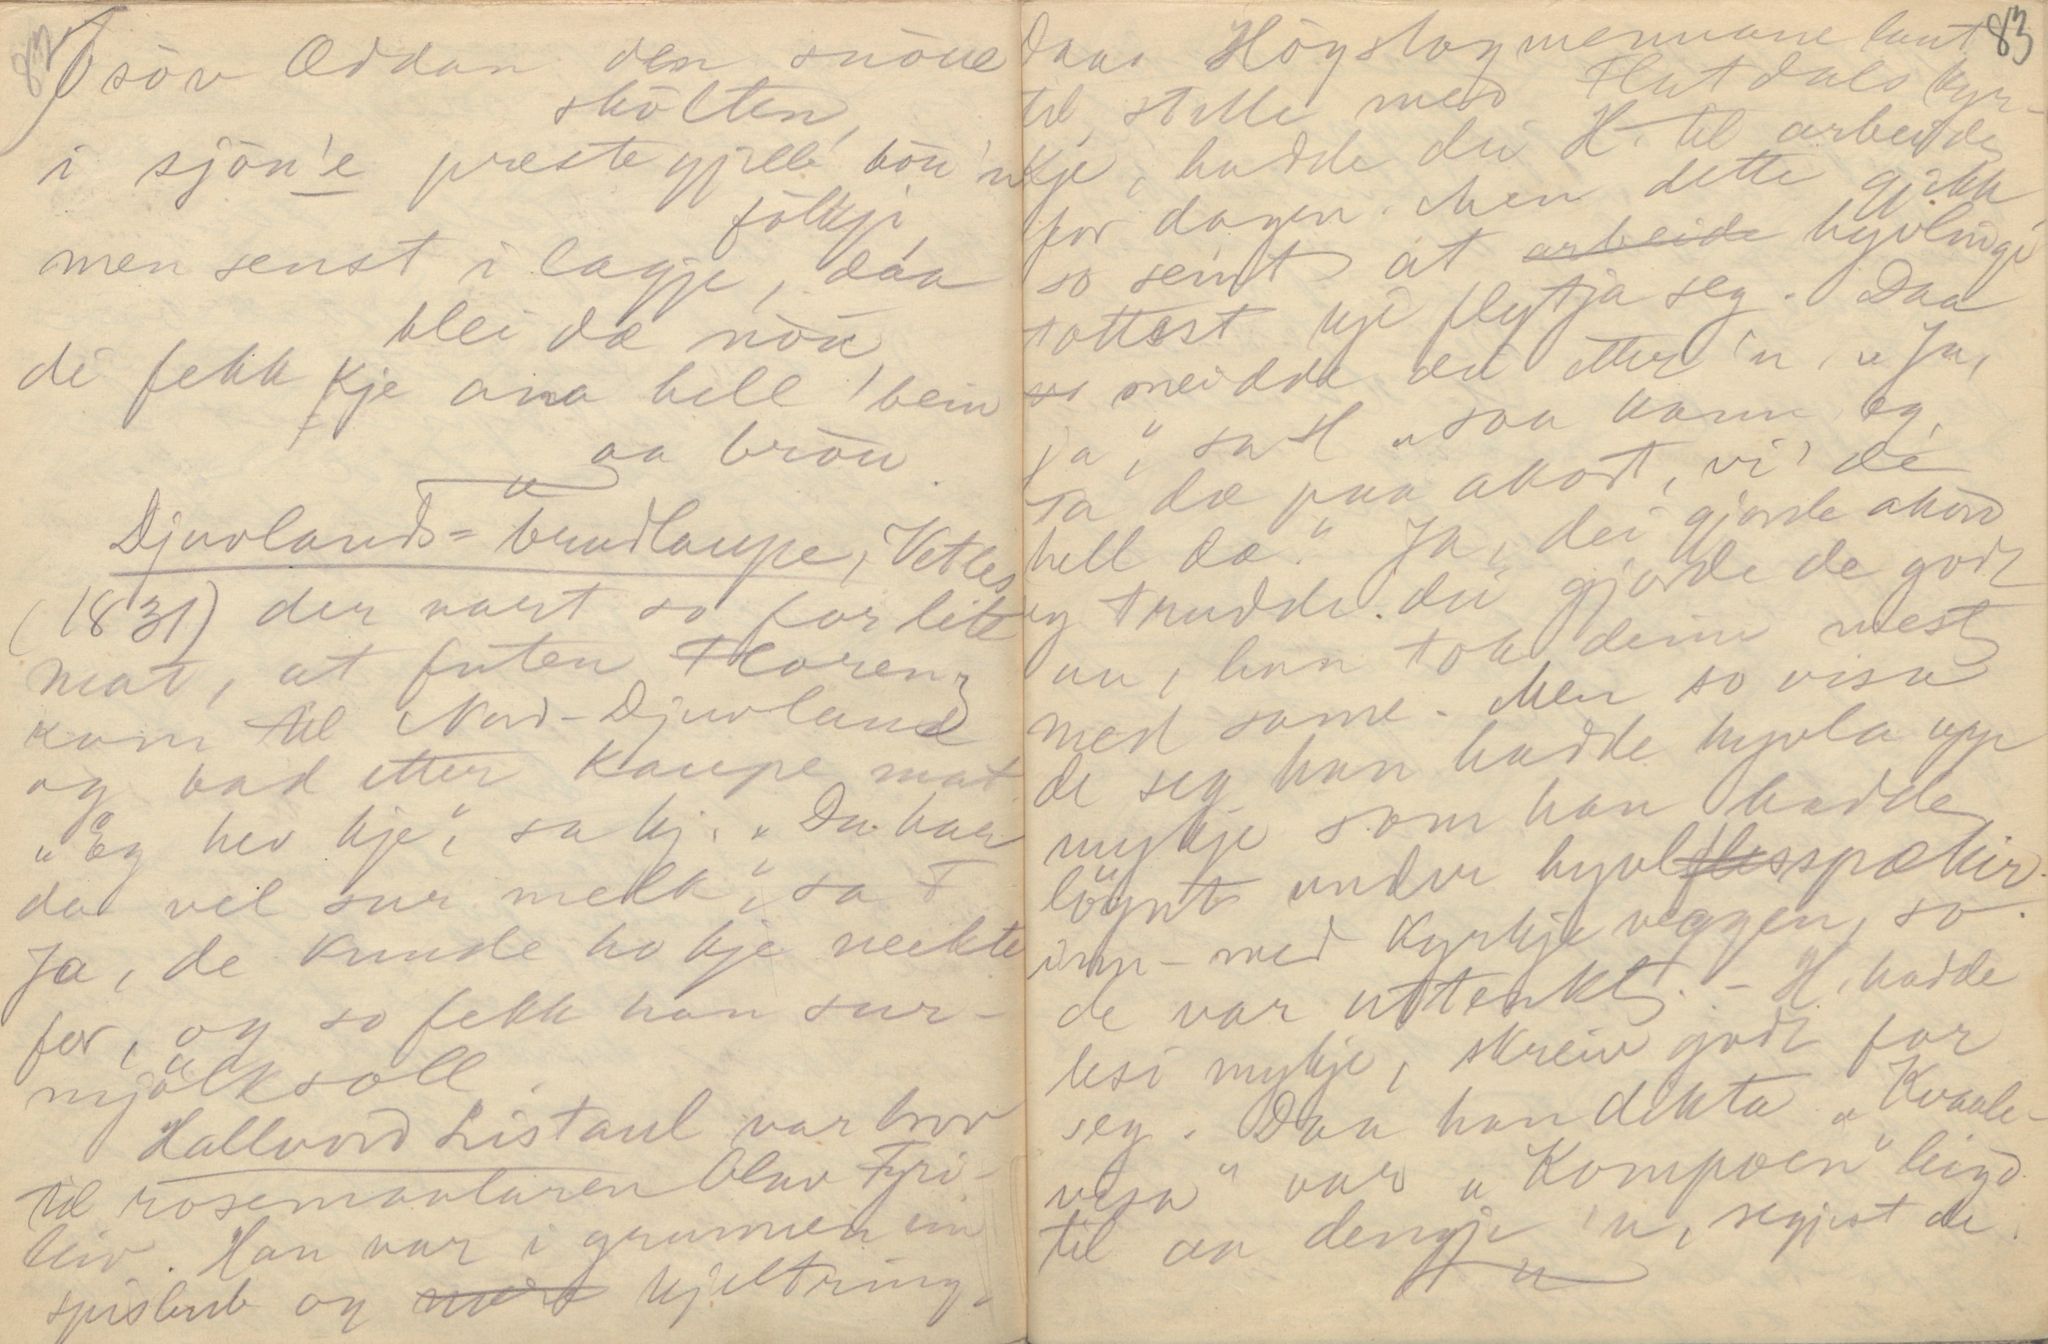 82
I söv Oddan den snöue
skölten,
i sjön'e prestegjell' böu'n
men senst i lagje, dáa
fölkji
di fekk kje ana hell' bein
blei dæ nöu
aa bröu.
Djuvlands-brudlaupe, Vetles
(1831) der vart so for lite
mat, at futen Florenz
kom til Nord-Djuvland
og bad etter kaupe mat.
"Eg hev kje", sa kj. "Du har
da vel sur melk", sa F
Ja, de kunde ho kje neikte
for, og so fekk han sur-
mjölksoll.
Hallvord Listaul var bror
til rosemaalaren Olav Fyri-
leiv. Han var i grunnen ein
spislub og kjeltring.
83
Daa Högslogmennane laut
til, stelle med Flatdals kyr-
kje, hadde dei H. til arbeide
for dagen. Men dette gjekk
so seint at arbeide hyvlingi
tottest kje flytja seg. Daa
so meidde dei etter 'n, "Ja,
ja", sa H "saa kann eg
ta dæ paa akort, vi' dé
hell dæ." Ja, dei gjorde akord
og trudde dei gjorde de godt
nu, han tok deim mest
med same. Men so visa
de seg han hadde hyvla upp
mykje som han hadde
löynt under hyvlflisspækir
inn-med kyrkjeveggen, so
de var uttenkt. - H. hadde
lesi mykje, skreiv godt for
seg. Daa han dikta "Kvaale-
visa" var "Kompoen" leigd
til aa dengje 'n, segjest de.